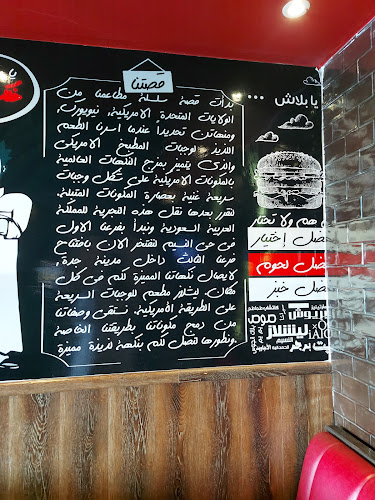 قصتنا
بدأت قصة سلسلة مطاعمنا من
الولايات المتحدة الامريكية، نيويورك،
ومنهاتن تحديداً عندما اسرنا الطعم
اللذيذ لوجبات المطبخ الامريكي
والذي يتميز بمزج النكهات العالمية
بالمكونات الامريكية على شكل وجبات
سريعة غنية بعصارة المكونات المتبلة.
لنقرر بعدها نقل هذه التجربة للمملكة
العربية السعودية ونبدأ بفرعنا الاول
في حي النسيم لنفتخر الان بافتتاح
فرعنا الثالث داخل مدينة جدة,
لايصال نكهاتنا المميزة لكم في كل
مكان. ليشلز مطعم للوجبات السريعة
على الطريقة الامريكية. نستقي وصفاتنا
من دمج مكوناتنا بطريقتنا الخاصة
ونطورها لتصل لكم بنكهة لذيذة مميزة.
يا بلاش ...
هم ولا تحتار
أفضل إختيار
أفضل لحوم
أفضل خبز
ليشلز
النسيم
برجر